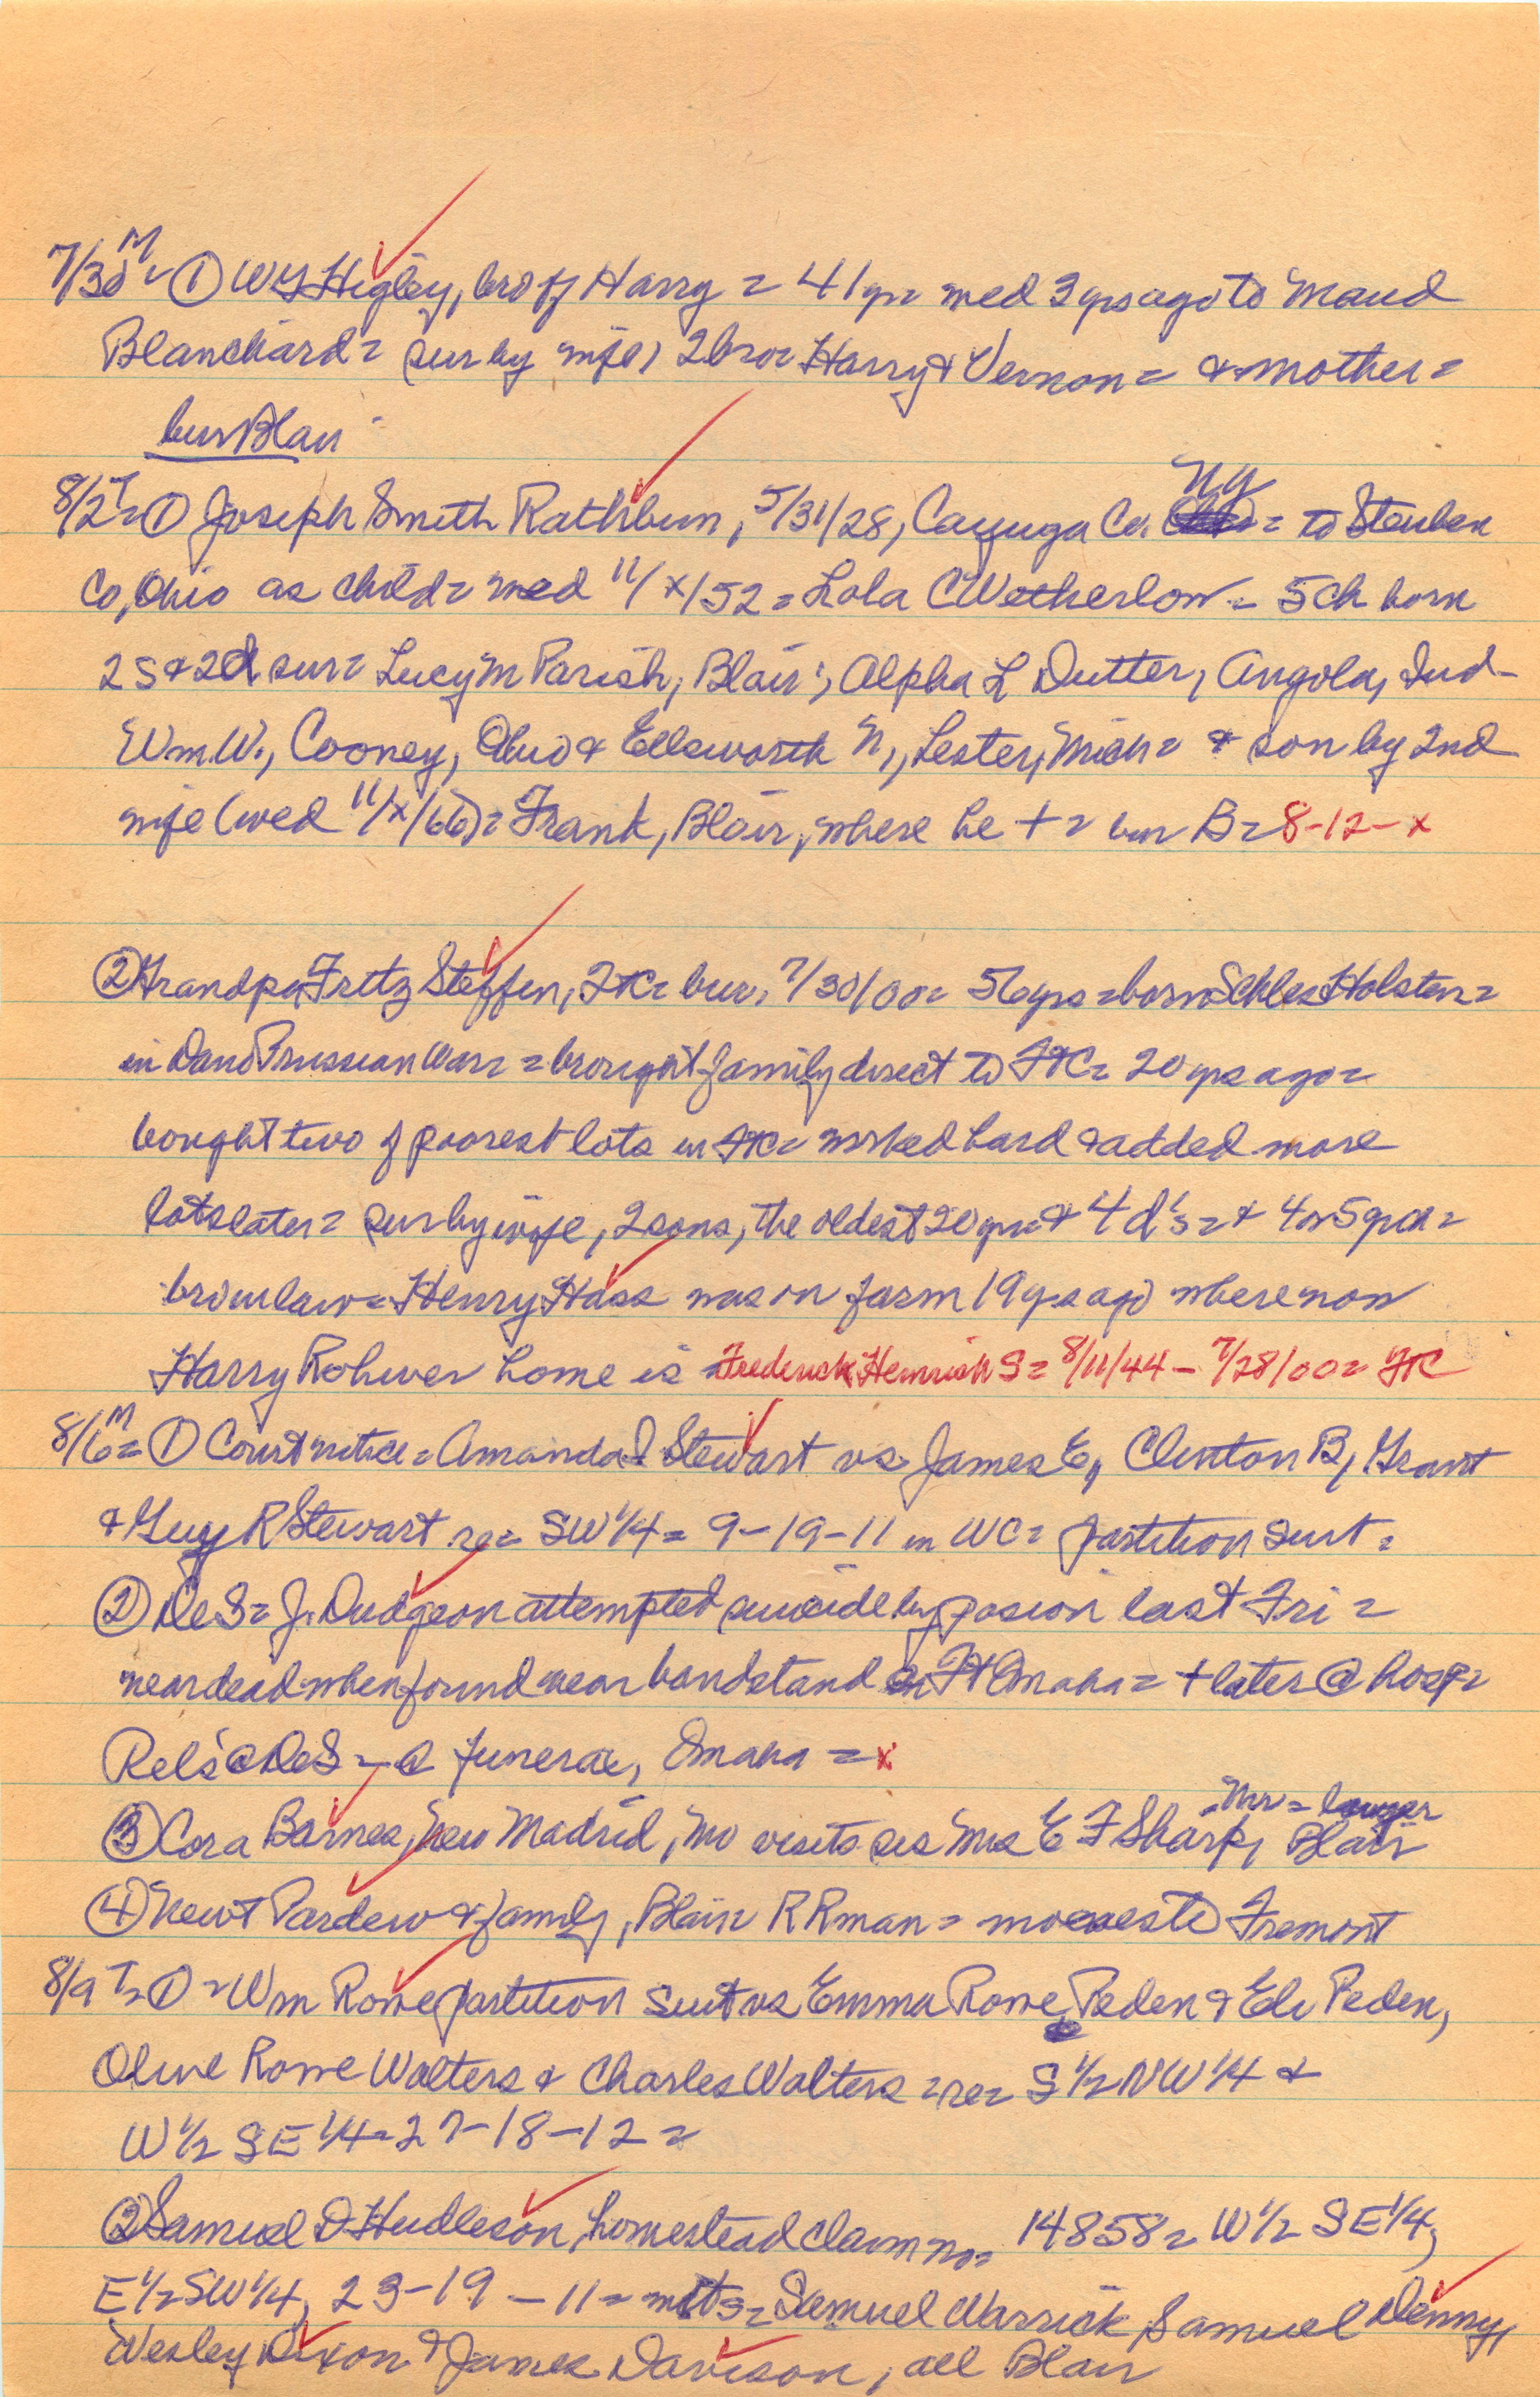 7/30 M = ① W Y Higley, bro of Harry = 41 yr = wed 3 yrs ago to Maud
Blanchard = sur by wife, 2 bro = Harry & Vernon = & mother =
bur Blair
8/2 T = ① Joseph Smith Rathbun, 5/31/28, Cayuga Co. NY = to Steuben
Co, Ohio as child = wed 11/x/52 = Lola C Wetherlow = 5 ch born
2 s & 2 d sur = Lucy M Parish, Blair; Alpha L Dutter, Angola, Ind -
Wm W., Cooney, Ohio & Ellsworth N, Lester, Mich = & son by 2nd
wife (wed 11/x/66) = Frank, Blair, where he + = bur B = 8-12-x
② Grandpa Fritz Steffen, FtC = bur. 7/30/00 = 56 yrs = born Schles Holsten =
in Dano Prussian War = brought family direct to FtC = 20 yrs ago =
bought two of poorest lots in FtC = worked hard & added more
lots later = sur by wife, 2 sons, the oldest 20 yrs & 4 d's = & 4 or 5 gch =
bro in law = Henry Hass was on farm 19 yrs ago where now
Harry Rohwer home is = Frederick Heinrich S = 8/11/44 - 7/28/00 = FtC
8/6 M = ① Court notice = Amanda I Stewart vs James E, Clinton B, Grant
& Guy R Stewart re = SW 1/4 = 9-19-11 in WC = partition suit =
② DeS = J. Dudgeon attempted suicide by posion last Fri =
near dead when found near bandstand in Ft Omaha = + later @ hosp =
Rel's @ DeS = @ funeral, Omaha = x
③ Cora Barnes, New Madrid, Mo visits sis Mrs E F Sharp, Blair
= Mr = lawyer
④ Newt Pardew & family, Blair RR man = moves to Fremont
8/9 T = ① = Wm Rowe partition suit vs Emma Rowe Peden & Eli Peden,
Olive Rowe Walters & Charles Walters = re = S 1/2 NW 1/4 &
W 1/2 SE 1/4 = 27-18-12 =
② Samuel D Hudleson, homestead claim no = 14858 = W 1/2 SE 1/4,
E 1/2 SW 1/4, 23-19-11 = wits = Samuel Warrick, Samuel Denny,
Wesley Dixon & James Davison, all Blair